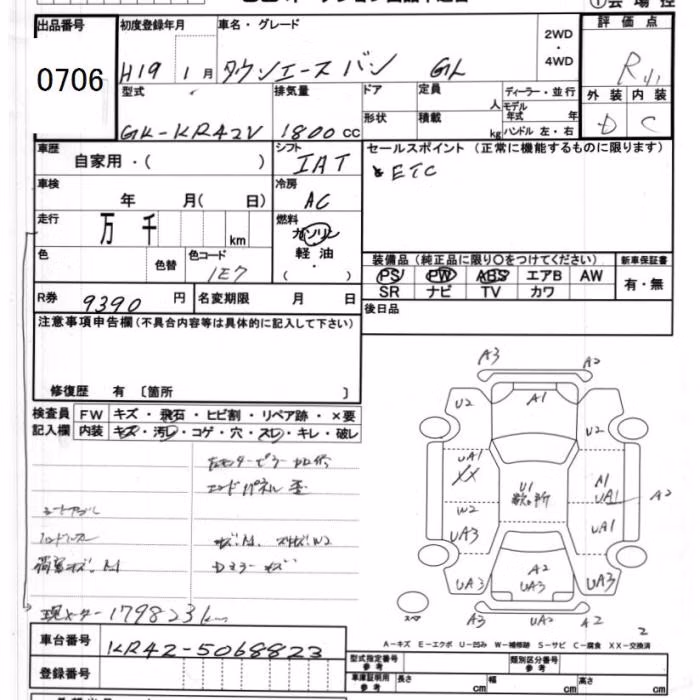 出品番号 初度登録年月 車名・グレード 2WD・4WD 評価点
0706 H19 1月 タウンエースバン GL R
外装 内装
D C
型式 排気量 ドア 定員 人 ディーラー・並行
形状 積載 kg モデル年式 年
ハンドル 左・右
GK-KR42V 1800cc
車歴 自家用・( ) シフト IAT セールスポイント(正常に機能するものに限ります)
ETC
車検 年 月( 日) 冷房 AC
走行 万 千 km 燃料 ガソリン
軽油
( ・ )
色 色替 色コード 1E7
装備品(純正品に限り〇をつけてください) 新車保証書
PS PW ABS エアB AW 有・無
SR ナビ TV カワ
R券 9390円 名変期限 月 日 後日品
注意事項申告欄(不具合内容等は具体的に記入して下さい)
修復歴 有 〔箇所 〕
検査員 FW キズ・飛石・ヒビ割・リペア跡・×要
記入欄 内装 キズ・汚レ・コゲ・穴・スレ・キレ・破レ
エンドパネル 歪
A3 A2
U2 A1 U2
UA1 XX U1 A1 UA1 A2
W2 UA1
UA3
UA3 A2 UA3 UA3
スペア A3 UA2 A2
2
現メーター179823km
A-キズ E-エクボ U-凹み W-補修跡 S-サビ C-腐食 XX-交換済
車台番号 KR42-5068823
型式指定番号 参考 類別区分番号 参考
登録番号
車庫証明用 参考 長さ cm 幅 cm 高さ cm